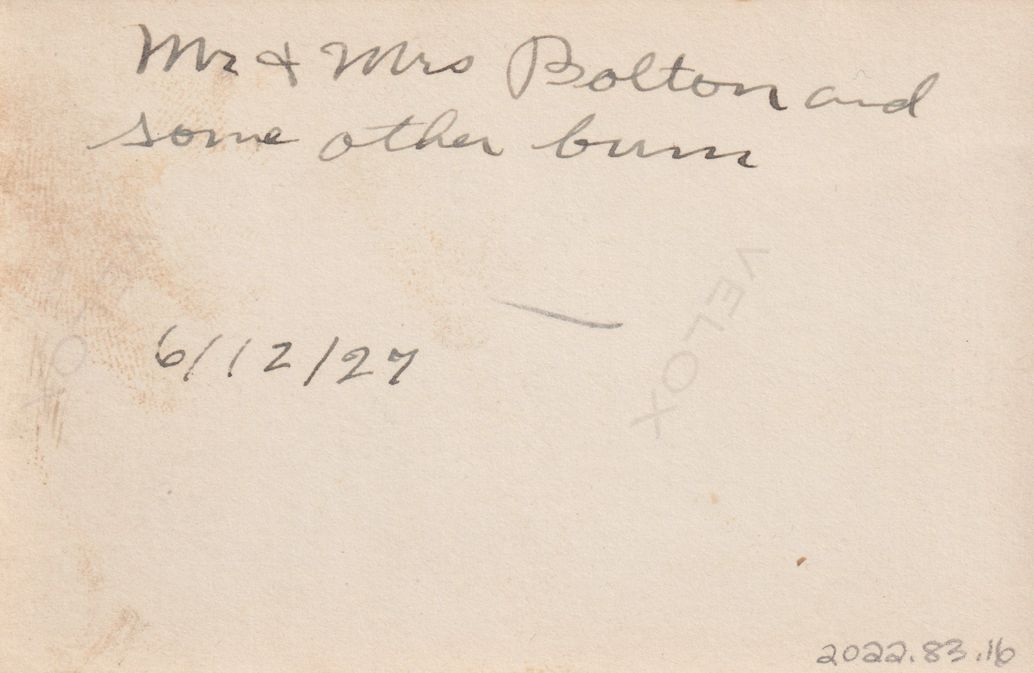 Mr & Mrs Bolton and
some other bum
VELOX
VELOX
6/12/27
2022.83.16